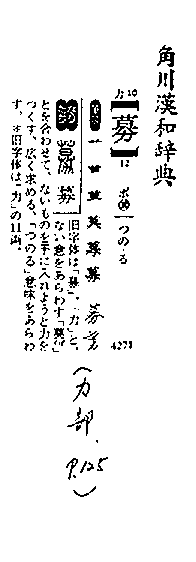 角川漢和辞典
力10
【募】
12
ボ
つの-る
4271
旧字体は、「募」。「力」と、
ない意をあらわす「莫」
とを合わせて、ないものを手に入れようと力を
つくす、広く求める、「つのる」意味をあらわ
す。旧字体は「力」の11画。
(力部、P.125)